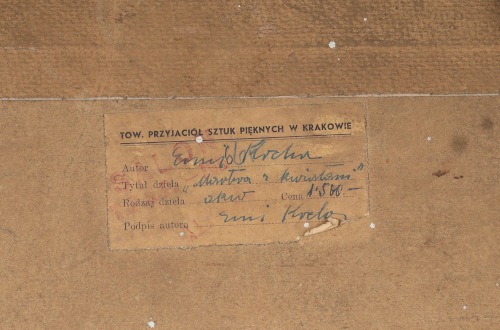 TOW. PRZYJACIÓŁ SZTUK PIĘKNYCH W KRAKOWIE
Autor Krcha
Tytuł dzieła „ z kwiatami"
Rodzaj dzieła akw Cena 1.500.-
Podpis autora Emi Krcha